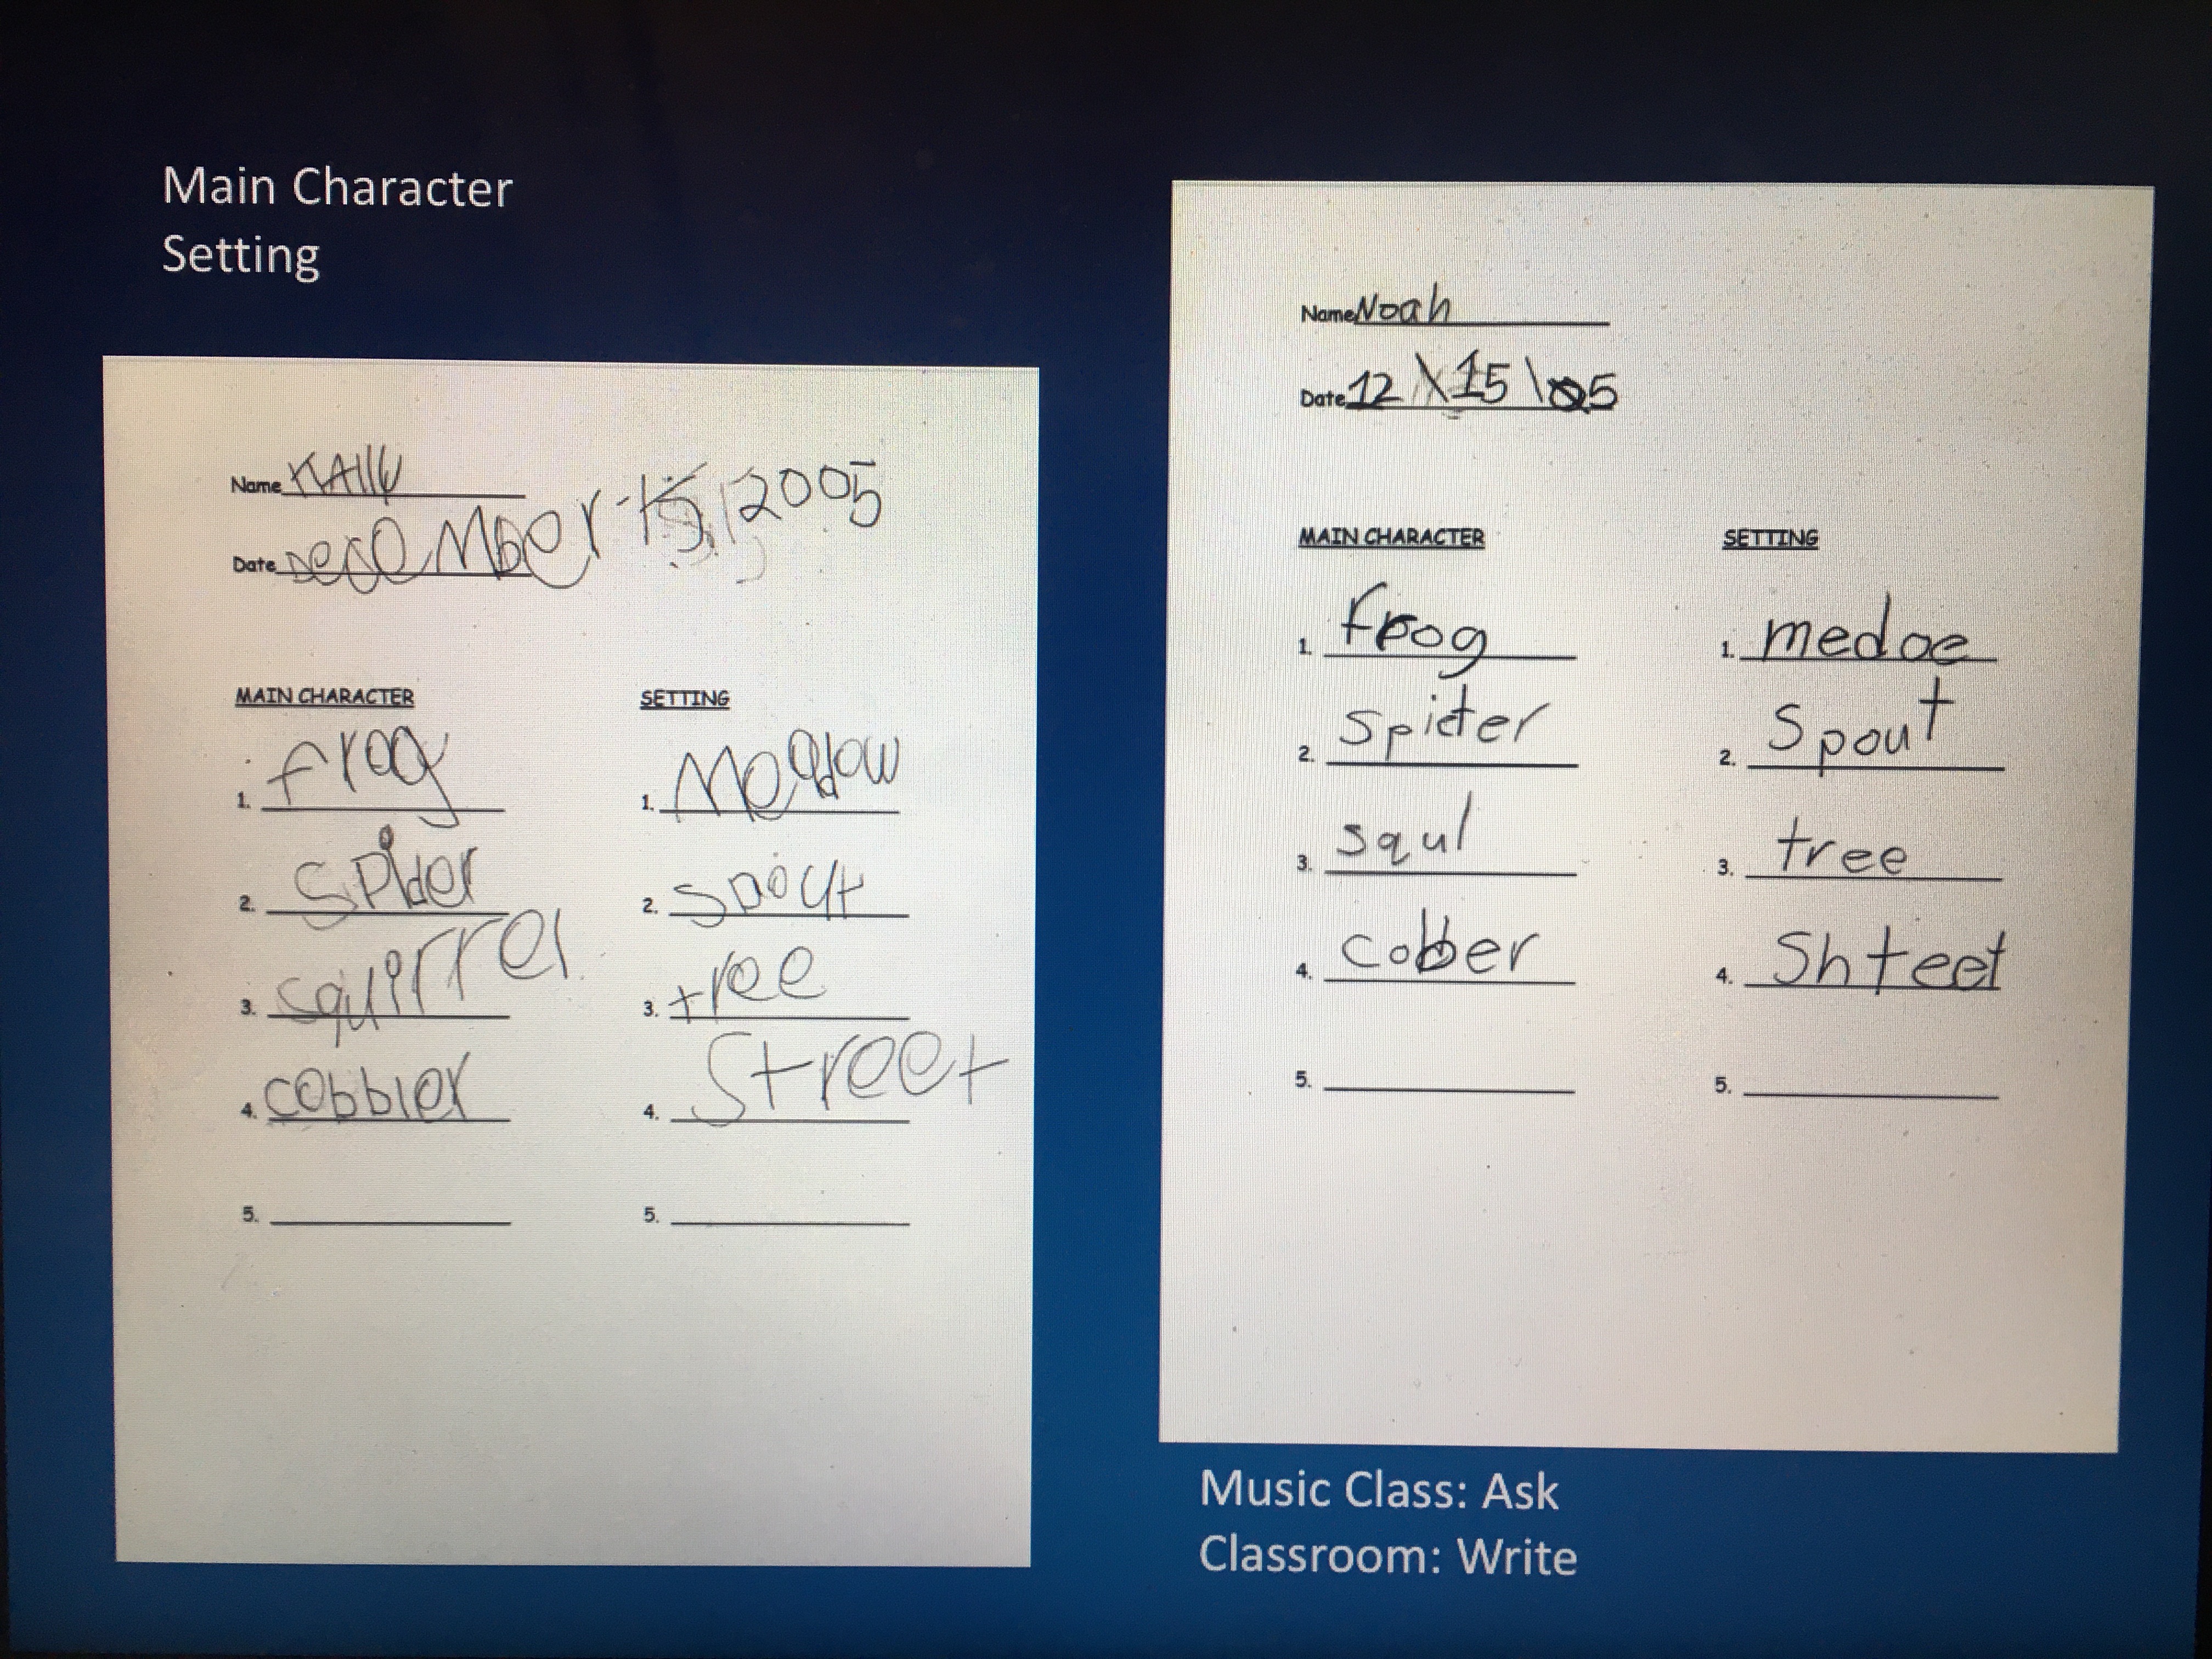 Main Character
Setting
Name
Date December 15, 2005
MAIN CHARACTER SETTING
1. frog 1. Meadow
2. Spider 2. spout
3. squirrel 3. tree
4. cobbler 4. Street
5. 5.
Name Noah
Date 12\15\05
MAIN CHARACTER SETTING
1. frog 1. medoe
2. Spider 2. Spout
3. squl 3. tree
4. cobber 4. Shteet
5. 5.
Music Class: Ask
Classroom: Write